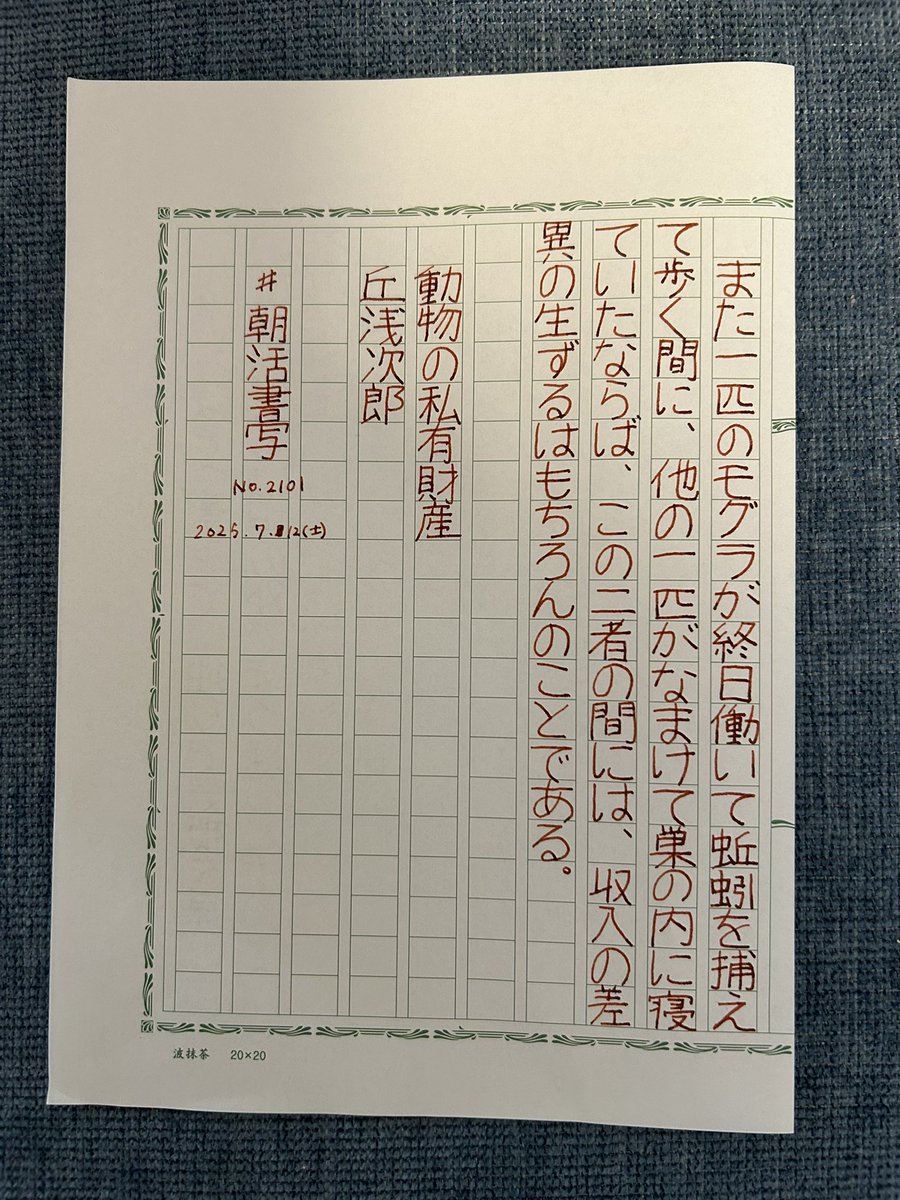 また一匹のモグラが終日働いて蚯蚓を捕え
て歩く間に、他の一匹がなまけて巣の内に寝
ていたならば、この二者の間には、収入の差
異の生ずるはもちろんのことである。
動物の私有財産
丘浅次郎
#朝活書写
No.2101
2025.7.12(土)
波抹茶 20×20